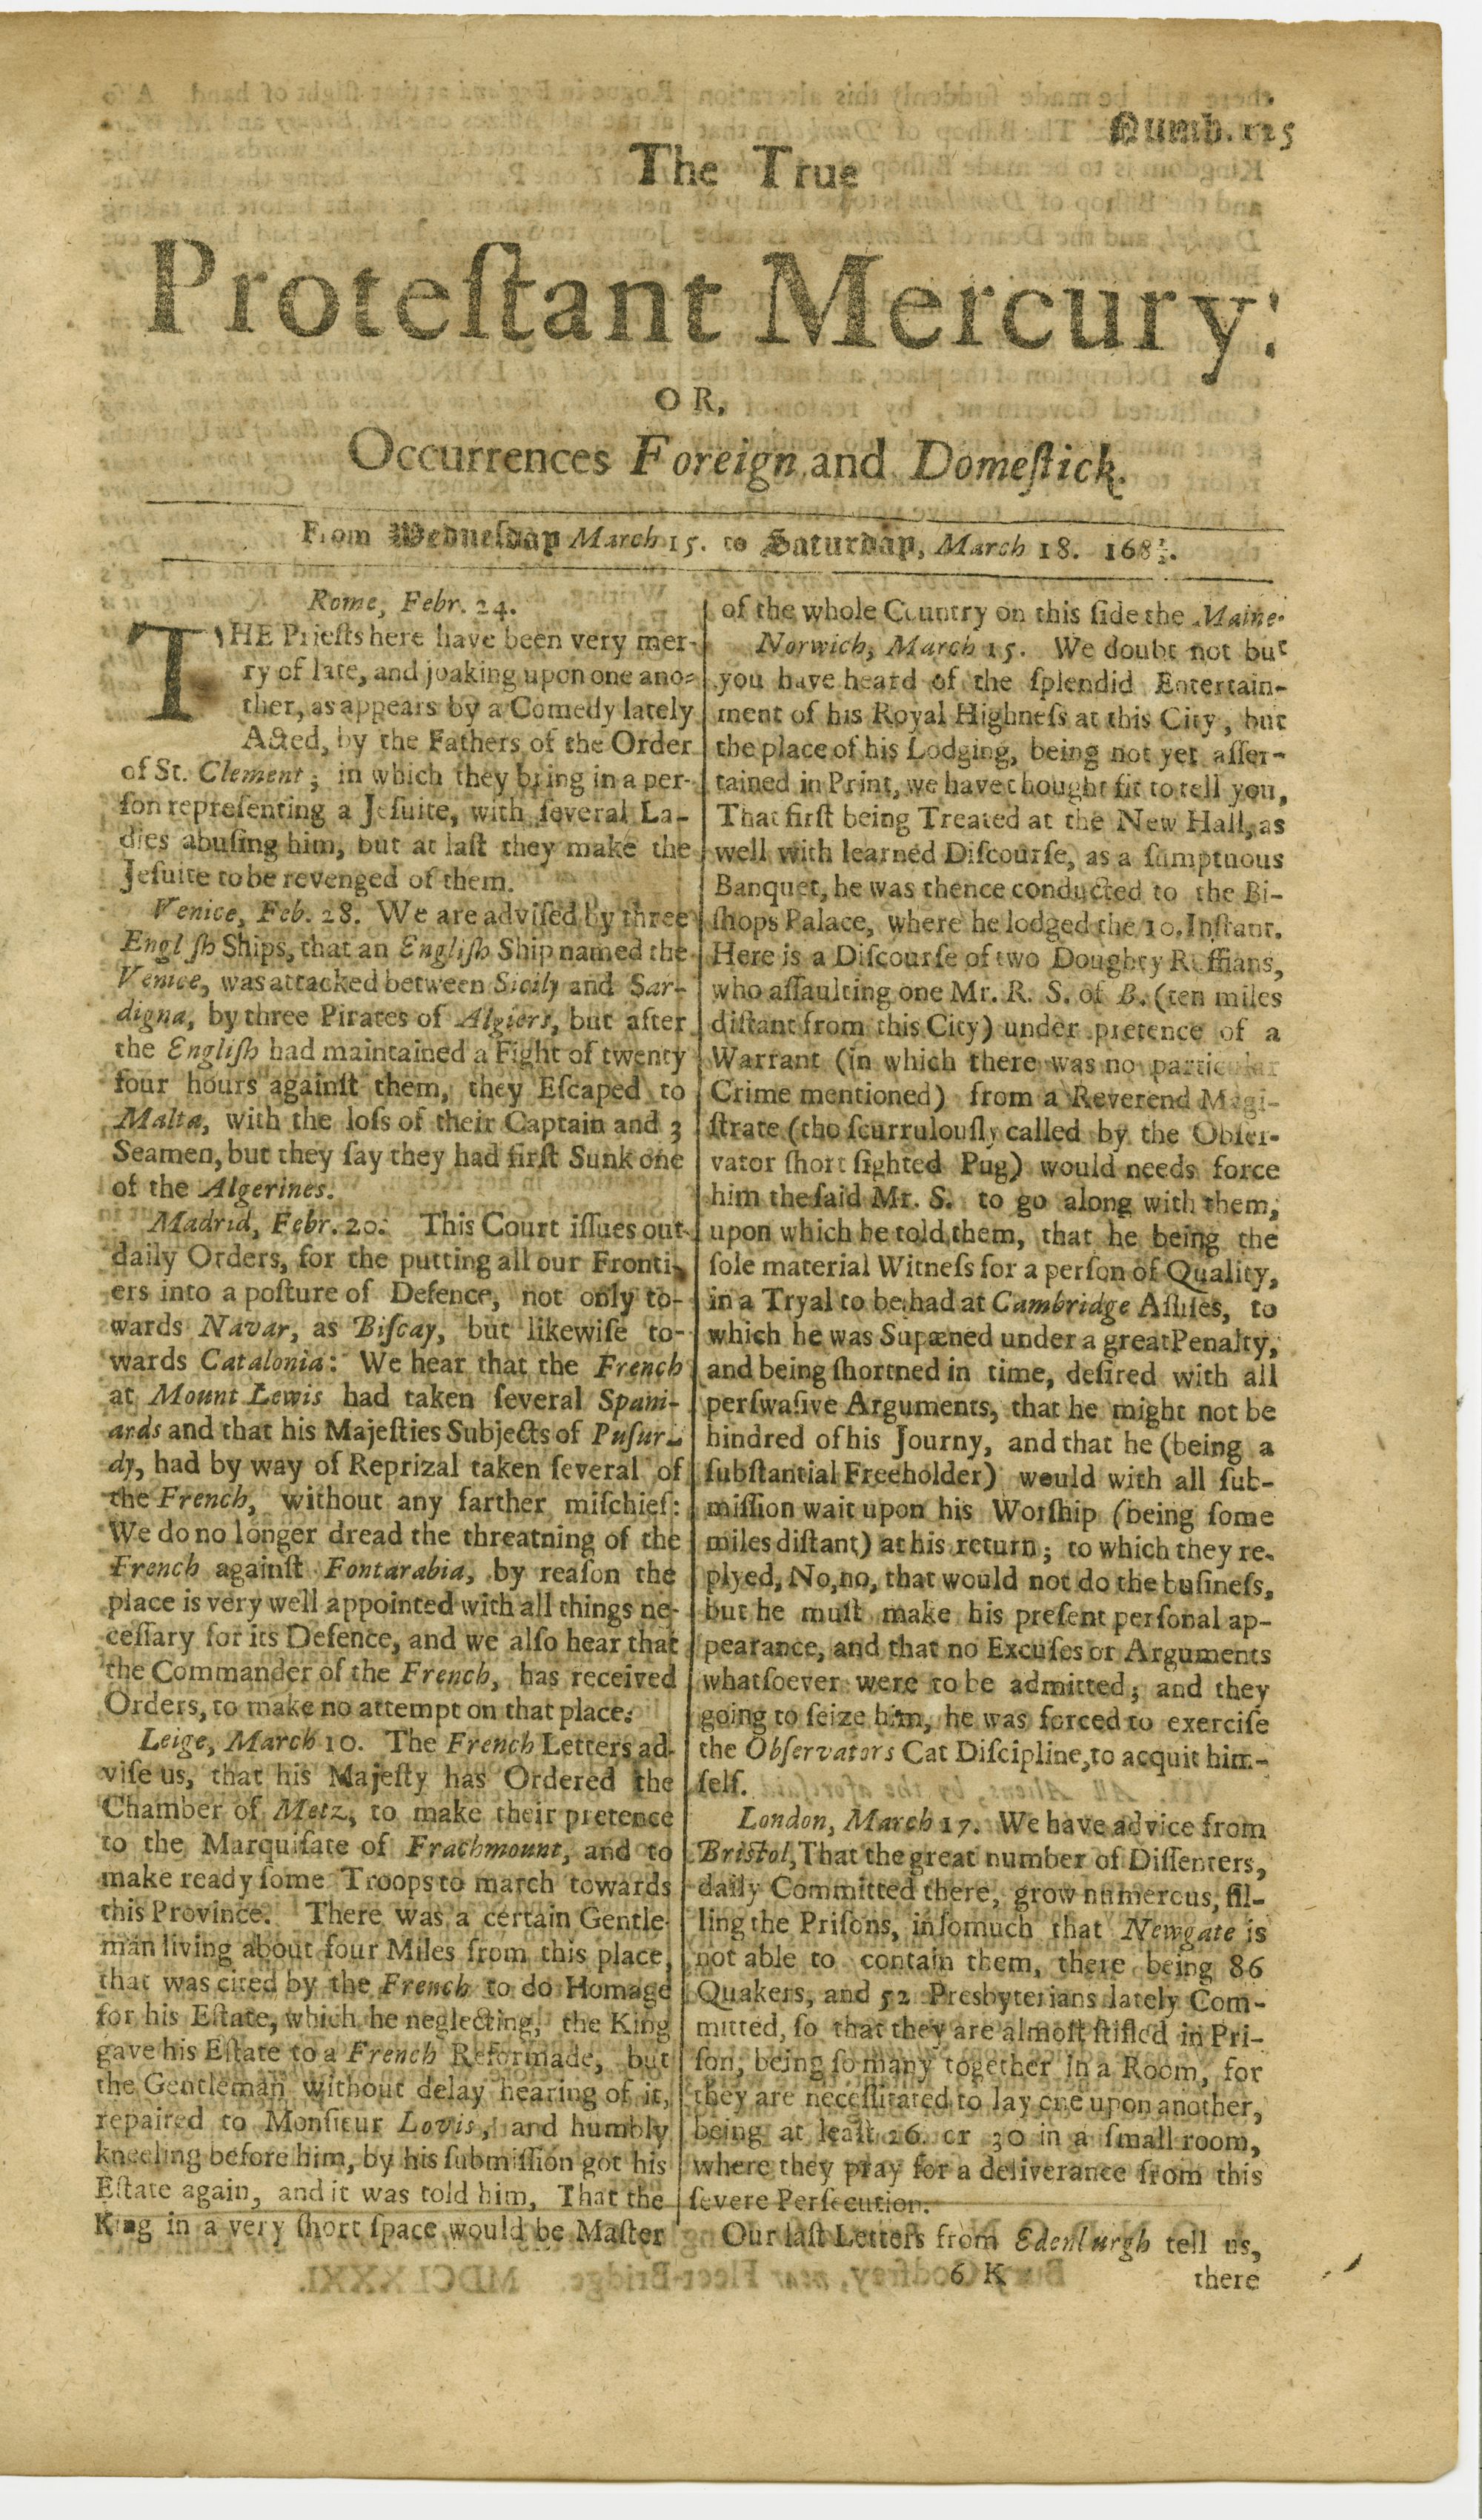 Numb. 125
The True
Proteſtant Mercury:
OR,
Occurrences Foreign and Domeſtick.
From Wedneſday March 15. to Saturday, March 18. 168½.
Rome, Febr. 24.
THE Prieſts here have been very mer-
ry of late, and joaking upon one ano-
ther, as appears by a Comedy lately
Acted, by the Fathers of the Order
of St. Clement; in which they bring in a per-
ſon repreſenting a Jeſuite, with ſeveral La-
dies abuſing him, but at laſt they make the
Jeſuite to be revenged of them.
Venice, Feb. 28. We are adviſed by three
Engliſh Ships, that an Engliſh Ship named the
Venice, was attacked between Sicily and Sar-
digna, by three Pirates of Algiers, but after
the Engliſh had maintained a Fight of twenty
four hours againſt them, they Eſcaped to
Malta, with the loſs of their Captain and 3
Seamen, but they ſay they had firſt Sunk one
of the Algerines.
Madrid, Febr. 20. This Court iſſues out
daily Orders, for the putting all our Fronti-
ers into a poſture of Defence, not only to-
wards Navar, as Biſcay, but likewiſe to-
wards Catalonia: We hear that the French
at Mount Lewis had taken ſeveral Spani-
ards and that his Majeſties Subjects of Puſur-
dy, had by way of Reprizal taken ſeveral of
the French, without any farther miſchief:
We do no longer dread the threatning of the
French againſt Fontarabia, by reaſon the
place is very well appointed with all things ne-
ceſſary for its Defence, and we alſo hear that
the Commander of the French, has received
Orders, to make no attempt on that place.
Leige, March 10. The French Letters ad-
viſe us, that his Majeſty has Ordered the
Chamber of Metz, to make their pretence
to the Marquiſate of Frachmount, and to
make ready ſome Troops to march towards
this Province. There was a certain Gentle-
man living about four Miles from this place,
that was cited by the French to do Homage
for his Eſtate, which he neglecting, the King
gave his Eſtate to a French Reformade, but
the Gentleman without delay hearing of it,
repaired to Monſieur Lovis, and humbly
kneeling before him, by his ſubmiſſion got his
Eſtate again, and it was told him, That the
King in a very ſhort ſpace would be Maſter
of the whole Country on this ſide the Maine.
Norwich, March 15. We doubt not but
you have heard of the ſplendid Entertain-
ment of his Royal Highneſs at this City, but
the place of his Lodging, being not yet aſſer-
tained in Print, we have thought fit to tell you,
That firſt being Treated at the New Hall, as
well with learned Diſcourſe, as a ſumptuous
Banquet, he was thence conducted to the Bi-
ſhops Palace, where he lodged the 10. Inſtant.
Here is a Diſcourſe of two Doughty Ruffians,
who aſſaulting one Mr. R. S. of B. (ten miles
diſtant from this City) under pretence of a
Warrant (in which there was no particular
Crime mentioned) from a Reverend Magi-
ſtrate (tho ſcurrulouſly called by the Obſer-
vator ſhort ſighted Pug) would needs force
him the ſaid Mr. S. to go along with them;
upon which he told them, that he being the
ſole material Witneſs for a perſon of Quality,
in a Tryal to be had at Cambridge Aſſiſes, to
which he was Supœned under a great Penalty,
and being ſhortned in time, deſired with all
perſwaſive Arguments, that he might not be
hindred of his Journy, and that he (being a
ſubſtantial Freeholder) would with all ſub-
miſſion wait upon his Worſhip (being ſome
miles diſtant) at his return; to which they re-
plyed, No, no, that would not do the buſineſs,
but he muſt make his preſent perſonal ap-
pearance, and that no Excuſes or Arguments
whatſoever were to be admitted; and they
going to ſeize him, he was forced to exerciſe
the Obſervators Cat Diſcipline, to acquit him-
ſelf.
London, March 17. We have advice from
Briſtol, That the great number of Diſſenters,
daily Committed there, grow numerous, fil-
ling the Priſons, inſomuch that Newgate is
not able to contain them, there being 86
Quakers, and 52 Presbyterians lately Com-
mitted, ſo that they are almoſt ſtifled in Pri-
ſon, being ſo many together in a Room, for
they are neceſſitated to lay one upon another,
being at leaſt 26. or 30 in a ſmall room,
where they pray for a deliverance from this
ſevere Perſecution.
Our laſt Letters from Edenburgh tell us,
6 K
there